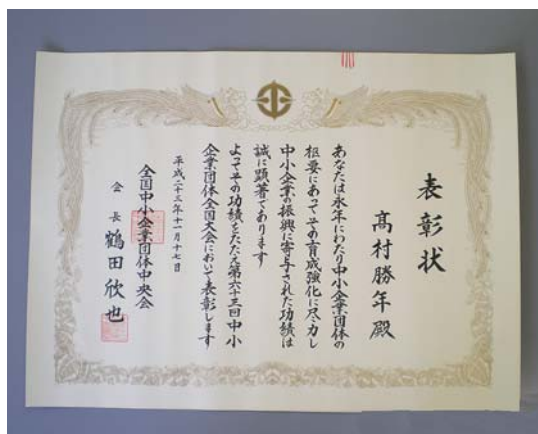 表彰状
髙村勝年殿
あなたは永年にわたり中小企業団体の
枢要にあってその育成強化に尽力し
中小企業の振興に寄与された功績は
誠に顕著であります
よってその功績をたたえ第六十三回中小
企業団体全国大会において表彰します
平成二十三年十一月十七日
全国中小企業団体中央会
会長 鶴田欣也